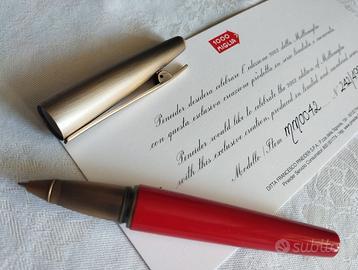 1000
MIGLIA
Pineider desidera celebrare l'edizione 2003 della Millemiglia
con questa esclusiva creazione prodotta in serie limitata e
Pineider would like to celebrate the 2003 edition of Millemiglia
with this exclusive creation produced in limited and
Modello / Item MM0042 N° 242/
DITTA FRANCESCO PINEIDER S.P.A.
subito